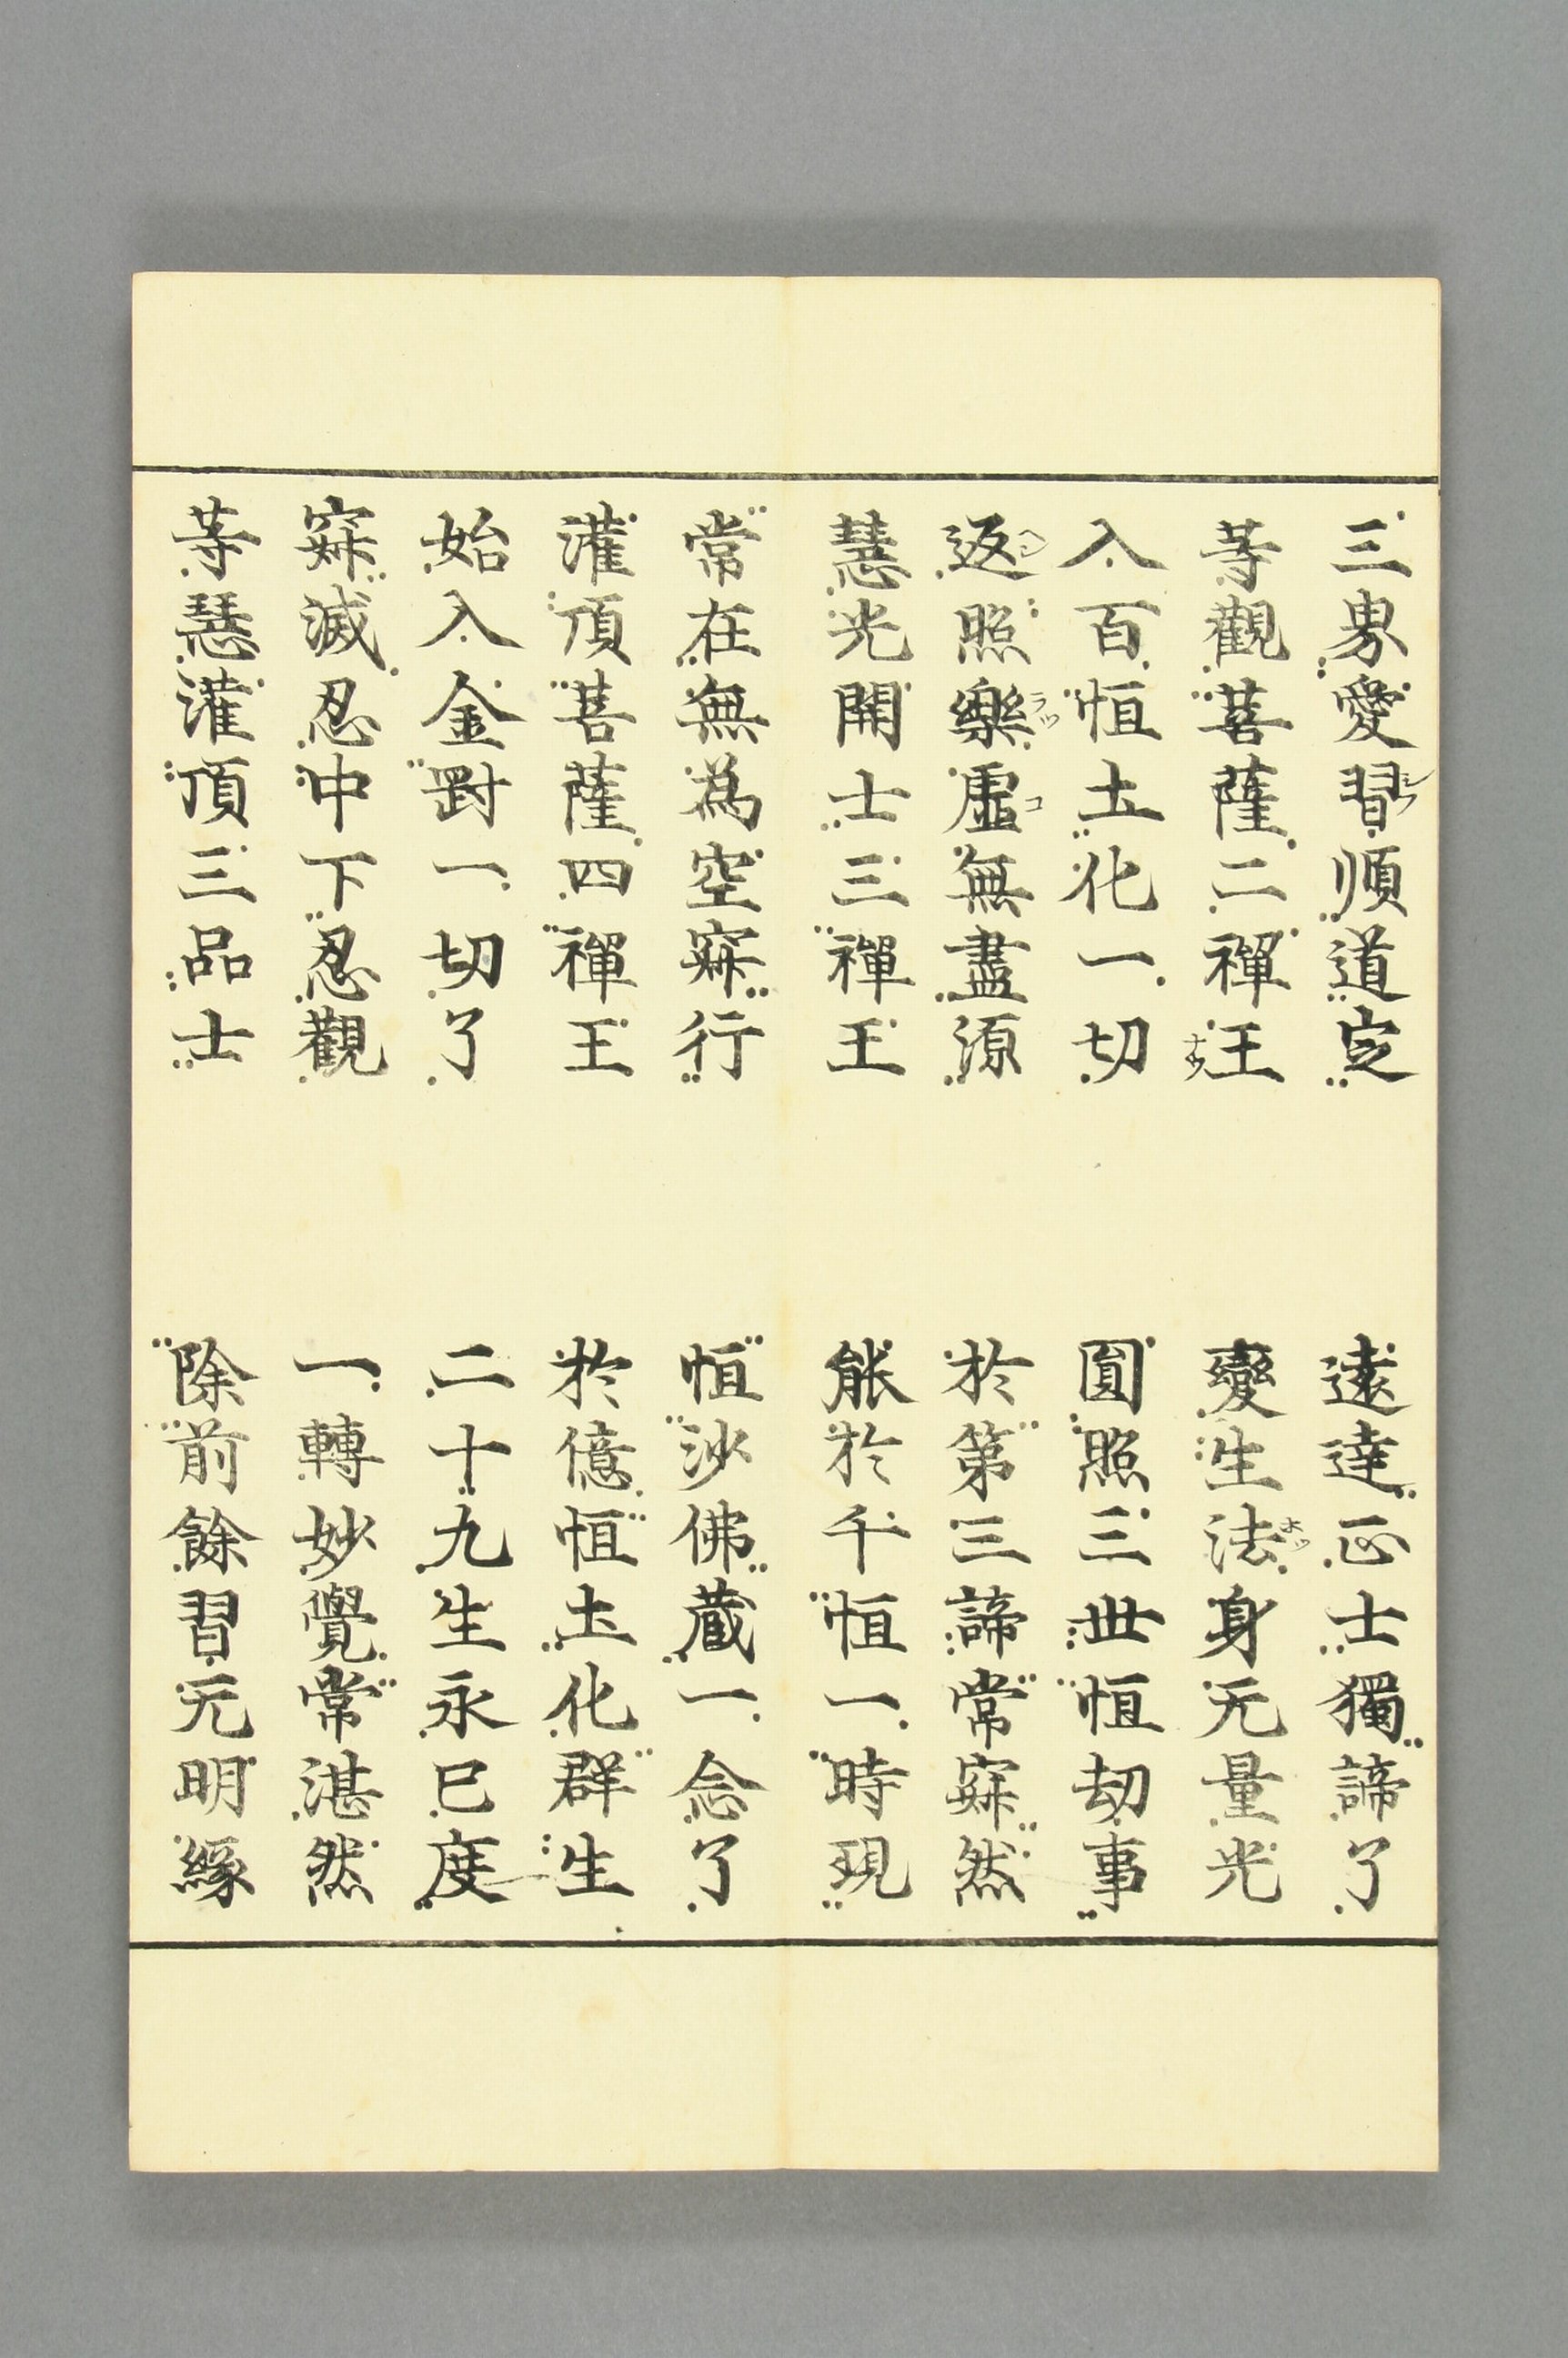 三界愛習順道定　遠達正士獨諦了
等觀菩薩二禪王　變生法身无量光
入百恒土化一切　圓照三世恒劫事
返照樂虛無盡源　於第三諦常寂然
慧光開士三禪王　能於千恒一時現
常在無為空寂行　恒沙佛蔵一念了
灌頂菩薩四禪王　於億恒土化群生
始入金剛一切了　二十九生永已度
寂滅忍中下忍觀　一轉妙覺常湛然
等慧灌頂三品士　除前餘習无明緣